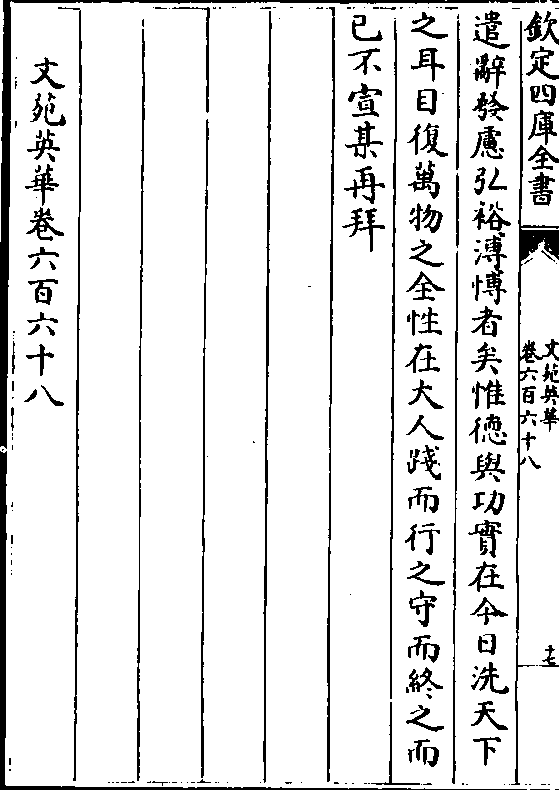 欽定四庫全書
文苑英華
卷六百六十八
十七
遣辭發慮弘裕溥慱者矣惟德與功實在今日洗天下
之耳目復萬物之全性在大人踐而行之守而終之而
已不宣某再拜
文苑英華卷六百六十八